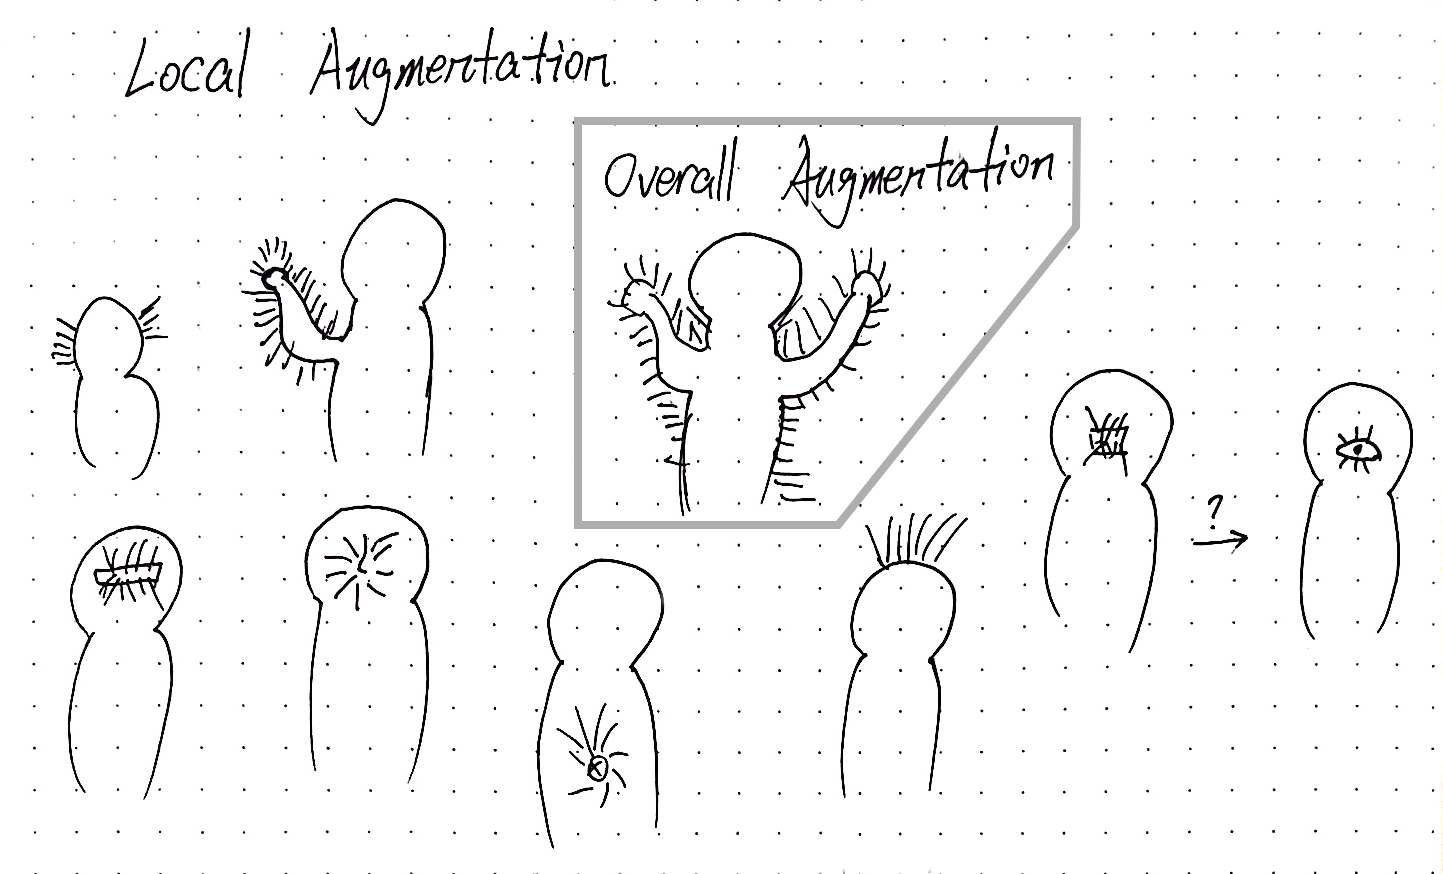 Local Augmentation
Overall Augmentation
?